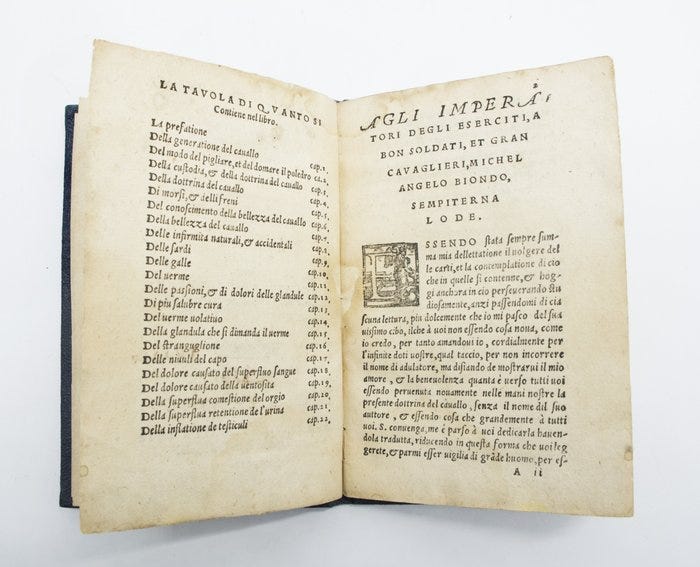 LA TAVOLA DI QVANTO SI
Contiene nel libro.
La prefatione
Della generatione del cauallo cap.1.
Del modo del pigliare, et del domare il poledro ca.2.
Della custodia, & della dottrina del cauallo cap.3.
Della dottrina del cauallo cap.4.
Di morsi, & delli freni cap.5.
Del conoscimento della bellezza del cauallo cap.6.
Della bellezza del cauallo cap.7.
Delle infirmita naturali, & accidentali cap.8.
Delle sardi cap.9.
Delle galle cap.10.
Del uerme cap.11.
Delle passioni, & di dolori delle glandule cap.12.
Di piu salubre cura cap.13.
Del uerme uolatiuo cap.14.
Della glandula che si dimanda il uerme cap.15.
Del stranguglione cap.16.
Delle niuuli del capo cap.17.
Del dolore causato del superfluo sangue cap.18.
Del dolore causato della uentosita cap.19.
Della superflua comestione del orgio cap.20.
Della superflua retentione de l'urina cap.21.
Della inflatione de testiculi cap.22.
2
AGLI IMPERA-
TORI DEGLI ESERCITI, A
BON SOLDATI, ET GRAN
CAVAGLIERI, MICHEL
ANGELO BIONDO,
SEMPITERNA
LODE.
SSENDO stata sempre sum-
ma mia delettatione il uolgere del
le carti, et la contemplatione di cio
che in quelle si contenne, & hog-
gi anchora in cio perseuerando stu
diosamente, anzi passendomi di cia
scuna lettura, piu dolcemente che io mi pasco del sua
uissimo cibo, ilche à uoi non essendo cosa noua, come
io credo, per tanto amandous io, cordialmente per
l'infinite doti uostre, qual taccio, per non incorrere
il nome di adulatore, ma disiando de mostrarui il mio
amore, & la beneuolenza quanta è uerso tutti uoi
essendo peruenuta nouamente nelle mani nostre la
presente dottrina del cauallo, senza il nome dil suo
auttore, & essendo cosa che grandemente à tutti
uoi. S. conuenga, me è parso à uoi dedicarla hauen-
dola tradutta, riducendo in questa forma che uoi leg
gerete, & parmi esser uigilia di gràde huomo, per es-
A ii